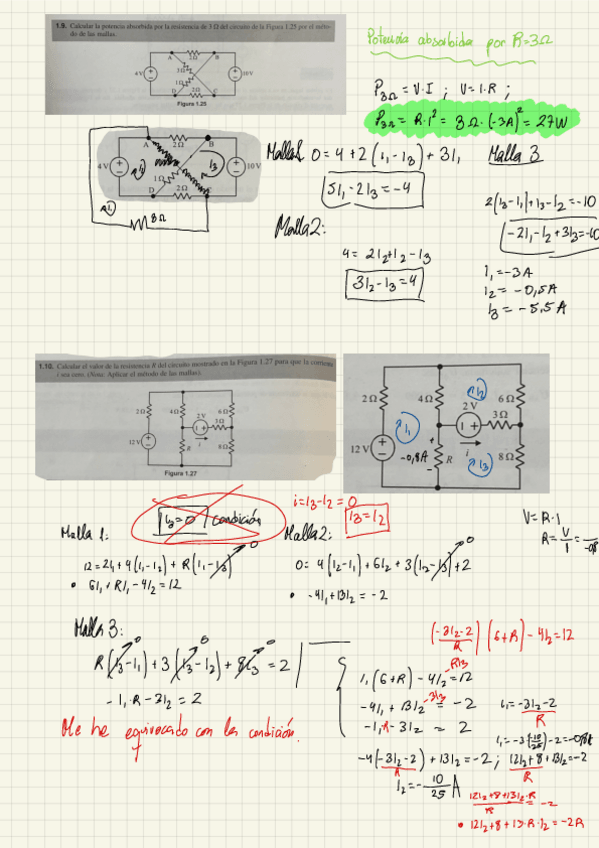 1.9. Calcular la potencia absorbida por la resistencia de 3 Ω del circuito de la Figura 1.25 por el método de las mallas.
A 2Ω B
4V 10V
1Ω
D 2Ω C
Figura 1.25
Potencia absorbida por R=3Ω
P3Ω = V·I ; V=I·R ;
P3Ω = R·I² = 3Ω·(-3A)² = 27W
A B
2Ω
4V I3 10V
1Ω
D 2Ω
3Ω
Malla 1 0=4+2(I1-I3)+3I1
5I1-2I3=-4
Malla 2:
4= 2I2+I2-I3
3I2-I3=4
Malla 3
2(I3-I1)+I3-I2=-10
-2I1-I2+3I3=-10
I1=-3A
I2=-0,5A
I3=-5,5A
1.10. Calcular el valor de la resistencia R del circuito mostrado en la Figura 1.27 para que la corriente
i sea cero. (Nota: Aplicar el método de las mallas).
2Ω 4Ω 6Ω
2V 3Ω
12V R i 8Ω
Figura 1.27
2Ω 4Ω I2 6Ω
2V 3Ω
I1
12V -0,8A R i I3 8Ω
I3=0 condición
i=I3-I2=0
I3=I2
V=R·I
R=V/I=
Malla 1:
12=2I1+4(I1-I2)+R(I1-I3) 0
• 6I1+RI1-4I2=12
Malla 2:
0=4(I2-I1)+6I2+3(I2-I3)+2 0
• -4I1+13I2=-2
Malla 3:
R(I3-I1)+3(I3-I2)+8I3=2
-I1·R-3I2=2
Me he equivocado con las condición.
(-3I2-2/R)(6+R)-4I2=12
I1(6+R)-4I2=12
-RI3
-4I1+13I2=-2
-3I3
-I1R-3I2=2
I1=-3I2-2/R
I1=-3(10/25)-2=-0,8A
-4(-3I2-2/R)+13I2=-2; 12I2+8/R+13I2=-2
I2=-10/25 A
12I2+8+13I2·R/R=-2
• 12I2+8+13·R·I2=-2R